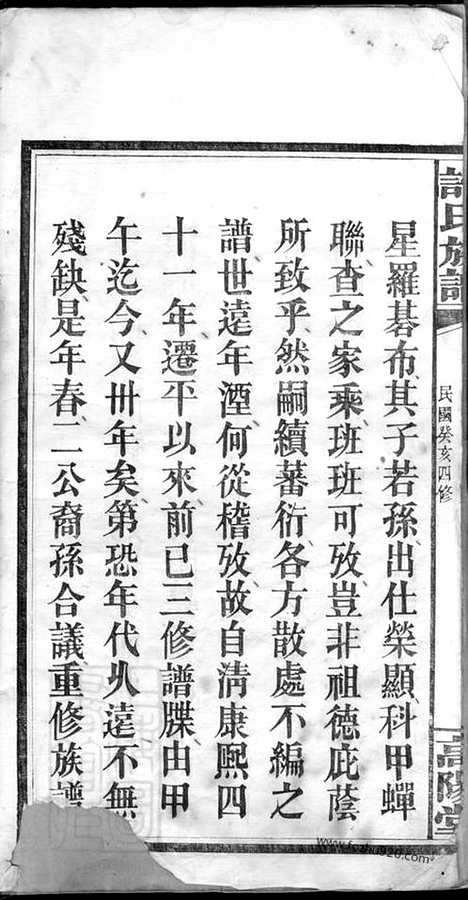 許氏族譜
民國癸亥四修
高陽堂
星羅碁布其子若孫出仕榮顯科甲蟬
聯查之家乘班班可攷豈非祖德庇蔭
所致乎然嗣續蕃衍各方散處不編之
譜世遠年湮何從稽攷故自淸康熙四
十一年遷平以來前已三修譜牒由甲
午迄今又卅年矣第恐年代乆遠不無
殘缺是年春二公裔孫合議重修族譜
www.fozhu920.com